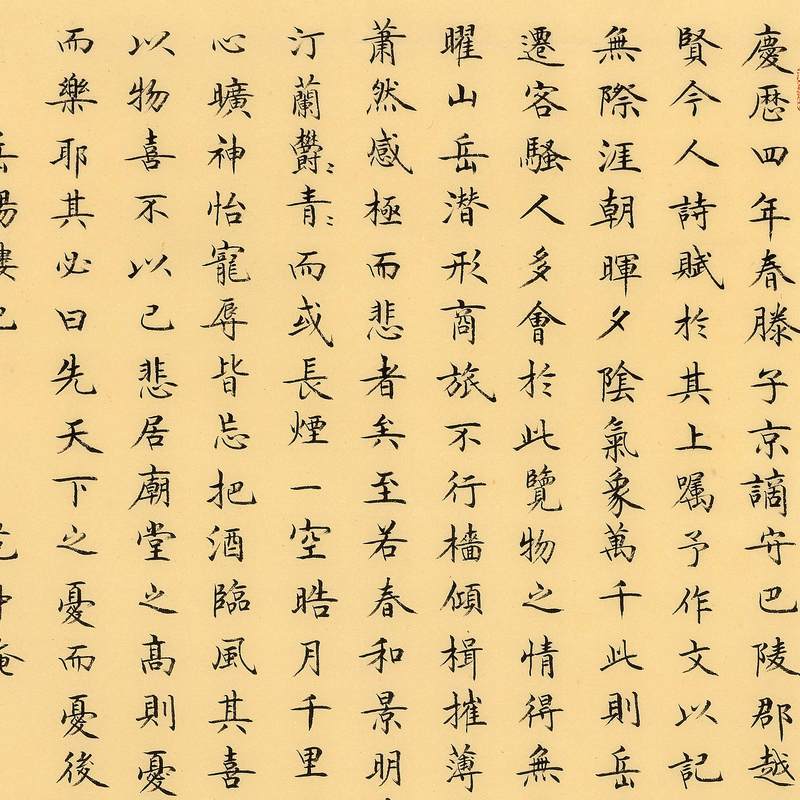 慶曆四年春滕子京謫守巴陵郡越
賢今人詩賦於其上嘱予作文以記
無際涯朝暉夕陰氣象萬千此則岳
遷客騷人多會於此覽物之情得無
曜山岳潛形商旅不行檣傾楫摧薄
蕭然感極而悲者矣至若春和景明
汀蘭鬱〻青〻而或長煙一空皓月千里
心曠神怡寵辱皆忘把酒臨風其喜
以物喜不以己悲居廟堂之髙則憂
而樂耶其必曰先天下之憂而憂後